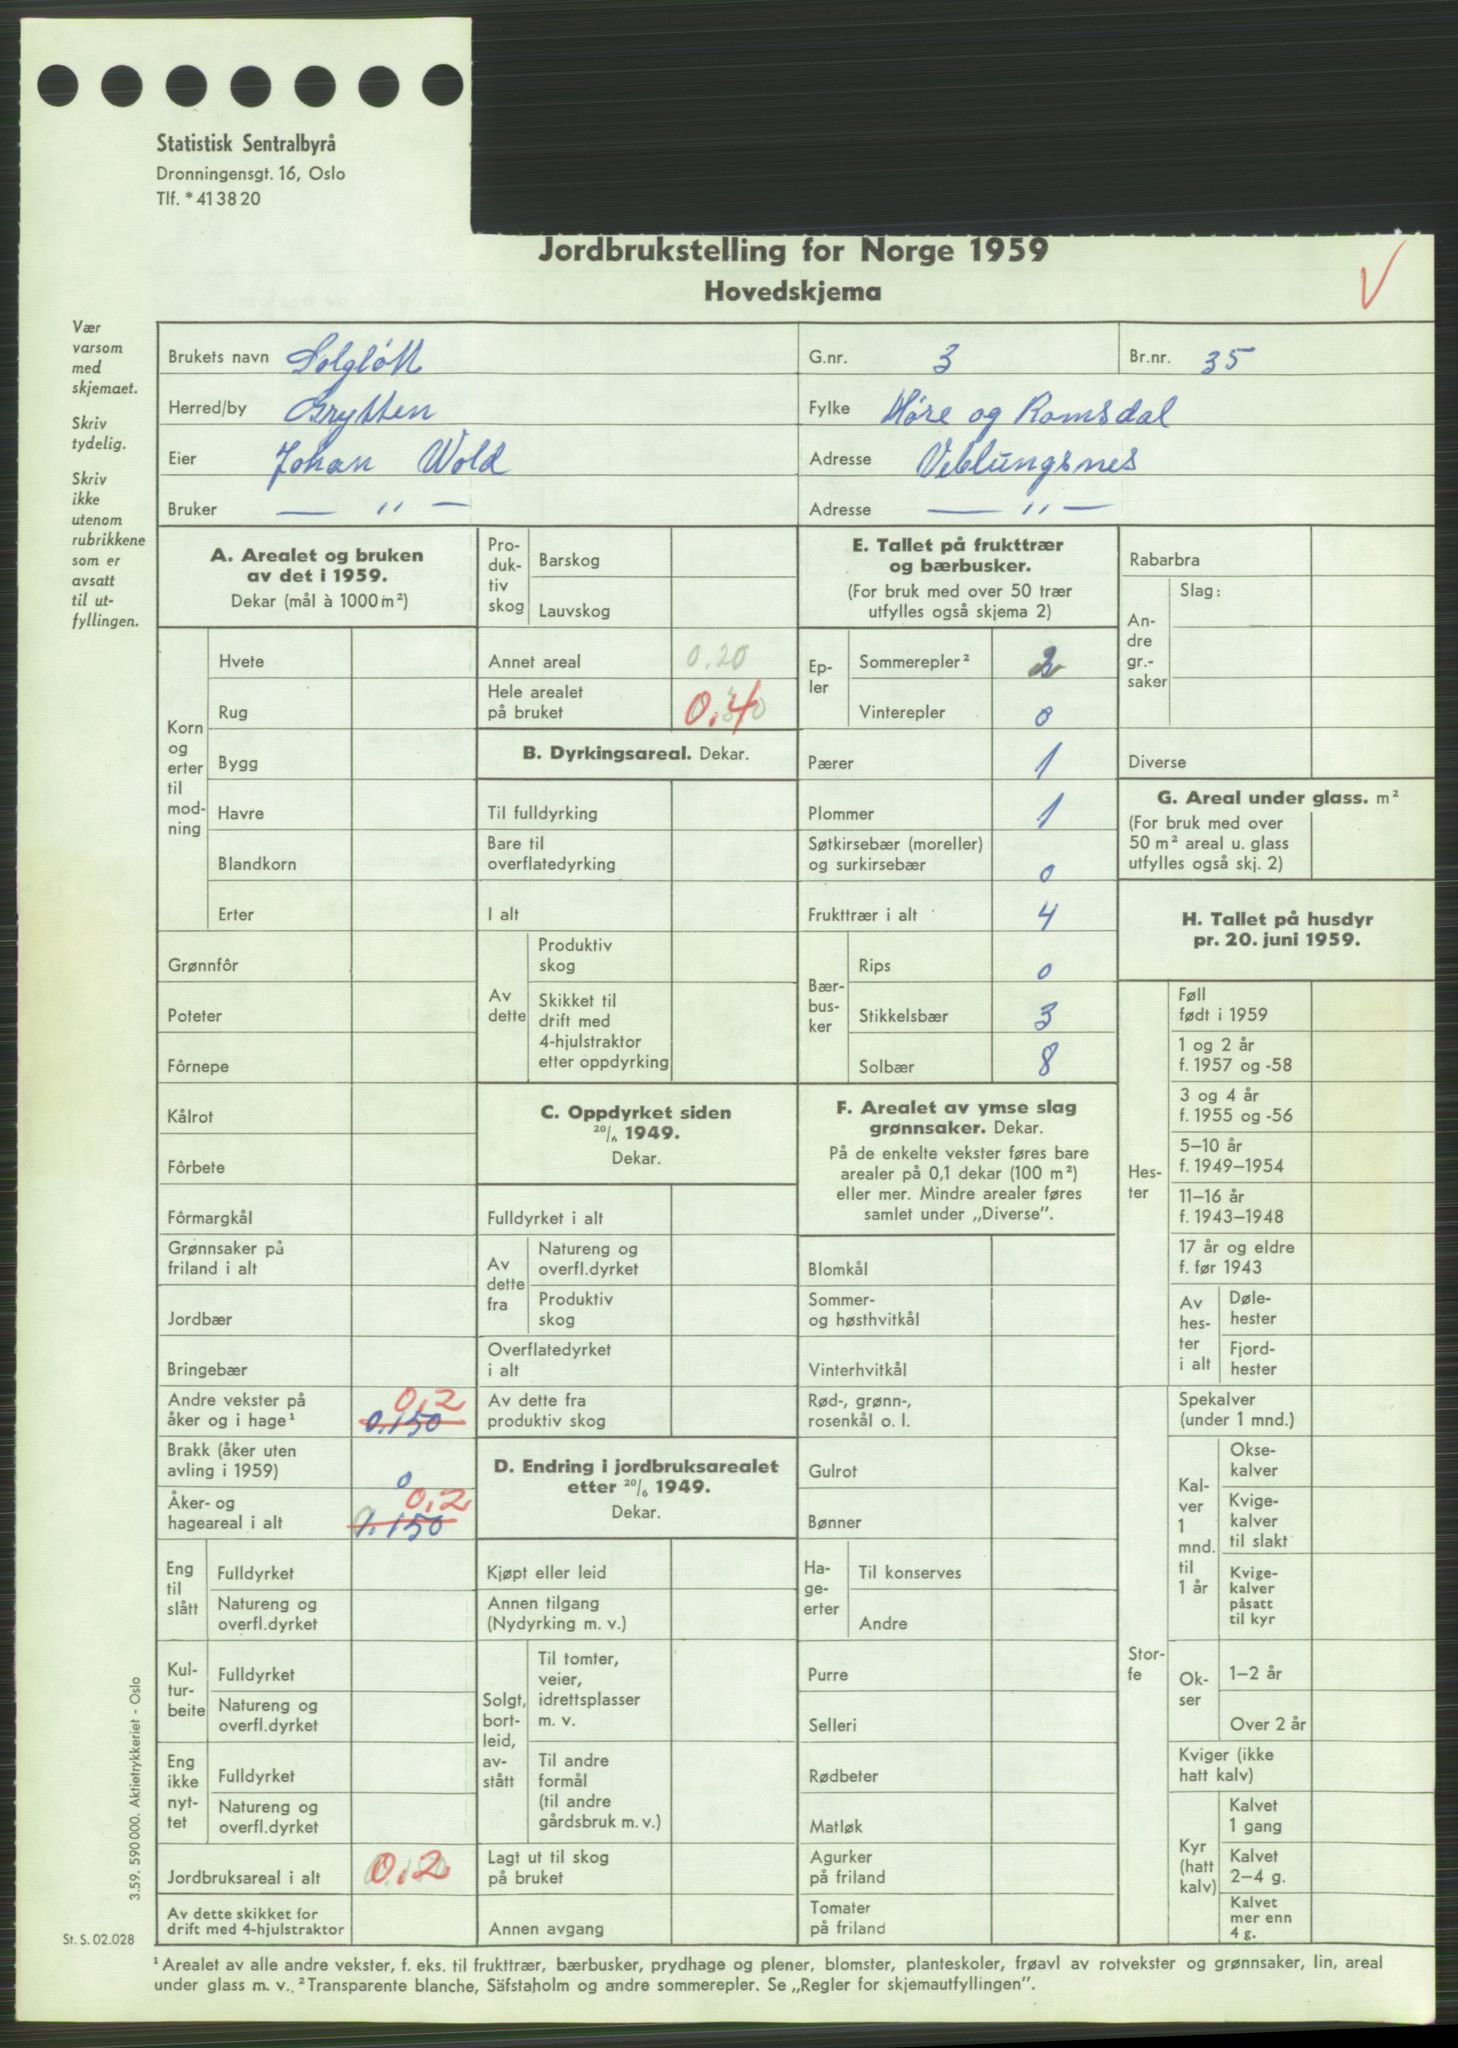 Statistisk Sentralbyrå
Dronningensgt. 16, Oslo
Tlf. * 41 38 20
Jordbrukstelling for Norge 1959
Hovedskjema
V
Vær
varsom
med
skjemaet.
Skriv
tydelig.
Skriv
ikke
utenom
rubrikkene
som er
avsatt
til ut-
fyllingen.
Brukets navn Solgløtt G.nr. 3 Br.nr. 35
Herred/by Grytten Fylke Møre og Romsdal
Eier Johan Wold Adresse Veblungsnes
Bruker — " — Adresse — " —
A. Arealet og bruken
av det i 1959.
Dekar (mål à 1000 m²)
Korn
og
erter
til
mod-
ning
Hvete
Rug
Bygg
Havre
Blandkorn
Erter
Grønnfôr
Poteter
Fôrnepe
Kålrot
Fôrbete
Fôrmargkål
Grønnsaker på
friland i alt
Jordbær
Bringebær
Andre vekster på 0,2
åker og i hage¹ 0.150
Brakk (åker uten
avling i 1959) 0
Åker- og 0,2
hageareal i alt 0.150
Eng
til
slått
Fulldyrket
Natureng og
overfl.dyrket
Kul-
tur-
beite
Fulldyrket
Natureng og
overfl.dyrket
Eng
ikke
nyt-
tet
Fulldyrket
Natureng og
overfl.dyrket
Jordbruksareal i alt 0,2
Av dette skikket for
drift med 4-hjulstraktor
Pro-
duk-
tiv
skog
Barskog
Lauvskog
Annet areal 0.20
Hele arealet
på bruket 0,4
B. Dyrkingsareal. Dekar.
Til fulldyrking
Bare til
overflatedyrking
I alt
Av
dette
Produktiv
skog
Skikket til
drift med
4-hjulstraktor
etter oppdyrking
C. Oppdyrket siden
20/6 1949.
Dekar.
Fulldyrket i alt
Av
dette
fra
Natureng og
overfl.dyrket
Produktiv
skog
Overflatedyrket
i alt
Av dette fra
produktiv skog
D. Endring i jordbruksarealet
etter 20/6 1949.
Dekar.
Kjøpt eller leid
Annen tilgang
(Nydyrking m. v.)
Solgt,
bort-
leid,
av-
stått
Til tomter,
veier,
idrettsplasser
m. v.
Til andre
formål
(til andre
gårdsbruk m. v.)
Lagt ut til skog
på bruket
Annen avgang
E. Tallet på frukttrær
og bærbusker.
(For bruk med over 50 trær
utfylles også skjema 2)
Ep-
ler
Sommerepler² 2
Vinterepler 0
Pærer 1
Plommer 1
Søtkirsebær (moreller)
og surkirsebær 0
Frukttrær i alt 4
Bær-
bus-
ker
Rips 0
Stikkelsbær 3
Solbær 8
F. Arealet av ymse slag
grønnsaker. Dekar.
På de enkelte vekster føres bare
arealer på 0,1 dekar (100 m²)
eller mer. Mindre arealer føres
samlet under „Diverse”.
Blomkål
Sommer-
og høsthvitkål
Vinterhvitkål
Rød-, grønn-,
rosenkål o. l.
Gulrot
Bønner
Ha-
ge-
erter
Til konserves
Andre
Purre
Selleri
Rødbeter
Matløk
Agurker
på friland
Tomater
på friland
Rabarbra
An-
dre
gr.-
saker
Slag:
Diverse
G. Areal under glass. m²
(For bruk med over
50 m² areal u. glass
utfylles også skj. 2)
H. Tallet på husdyr
pr. 20. juni 1959.
Hes-
ter
Føll
født i 1959
1 og 2 år
f. 1957 og -58
3 og 4 år
f. 1955 og -56
5–10 år
f. 1949–1954
11–16 år
f. 1943–1948
17 år og eldre
f. før 1943
Av
hes-
ter
i alt
Døle-
hester
Fjord-
hester
Stor-
fe
Spekalver
(under 1 mnd.)
Kal-
ver
1
mnd.
til
1 år
Okse-
kalver
Kvige-
kalver
til slakt
Kvige-
kalver
påsatt
til kyr
Ok-
ser
1–2 år
Over 2 år
Kviger (ikke
hatt kalv)
Kyr
(hatt
kalv)
Kalvet
1 gang
Kalvet
2–4 g.
Kalvet
mer enn
4 g.
3.59. 590 000. Aktietrykkeriet - Oslo
St. S. 02.028
¹ Arealet av alle andre vekster, f. eks. til frukttrær, bærbusker, prydhage og plener, blomster, planteskoler, frøavl av rotvekster og grønnsaker, lin, areal
under glass m. v. ² Transparente blanche, Säfstaholm og andre sommerepler. Se „Regler for skjemautfyllingen”.